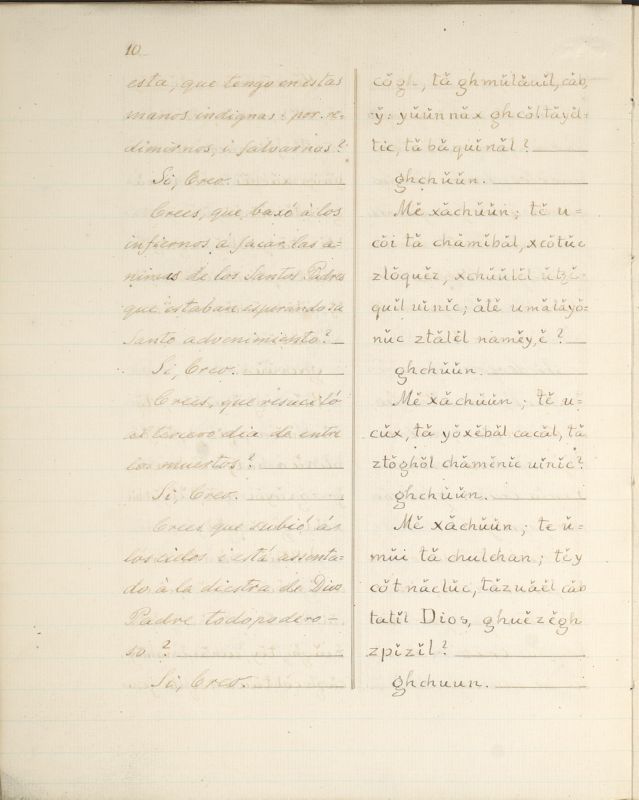 10
esta, que tengo en estas
manos indignas: por re=
dimirnos, i salvarnos?
Si, Creo.
Crees, que baxó á los
infiernos á sacar las a=
nimas de los Santos Padres
que estaban esperando su
Santo advenimiento?
Si, Creo.
Crees, que resucitó
al tercero dia de entre
los muertos?
Si, Creo.
Crees que subió á
los cielos i está assenta=
do á la diestra de Dios
Padre todopodero-
so?
Si, Creo.
tă ghmŭlăuĭl, căb,
y̆: yŭŭn năx gh cŏltăyăl-
tic, tă bă quĭnăl?
ghchŭŭn.
Mĕ xăchŭŭn; tĕ u=
cŏi tă chămĭbăl, xcŏtŭc
zlŏquĕz, xchŭŭlĕl
quĭl uĭnĭc; ătĕ umălăyŏ=
nŭc ztălĕl namĕy, ĕ?
ghchŭŭn.
Mĕ xăchŭŭn; tĕ u=
cŭx, tă yŏxĕbăl cacăl, tă
ztŏghŏl chămĕnĭc uĭnĭc?
ghchŭŭn.
Mĕ xăchŭŭn; te ŭ=
mŭi tă chulchan; tĕy
cŏt năclŭc, tăzuăĕl căb
tatĭl Dios, ghuĕzĕgh
zpĭzĭl?
ghchuun.